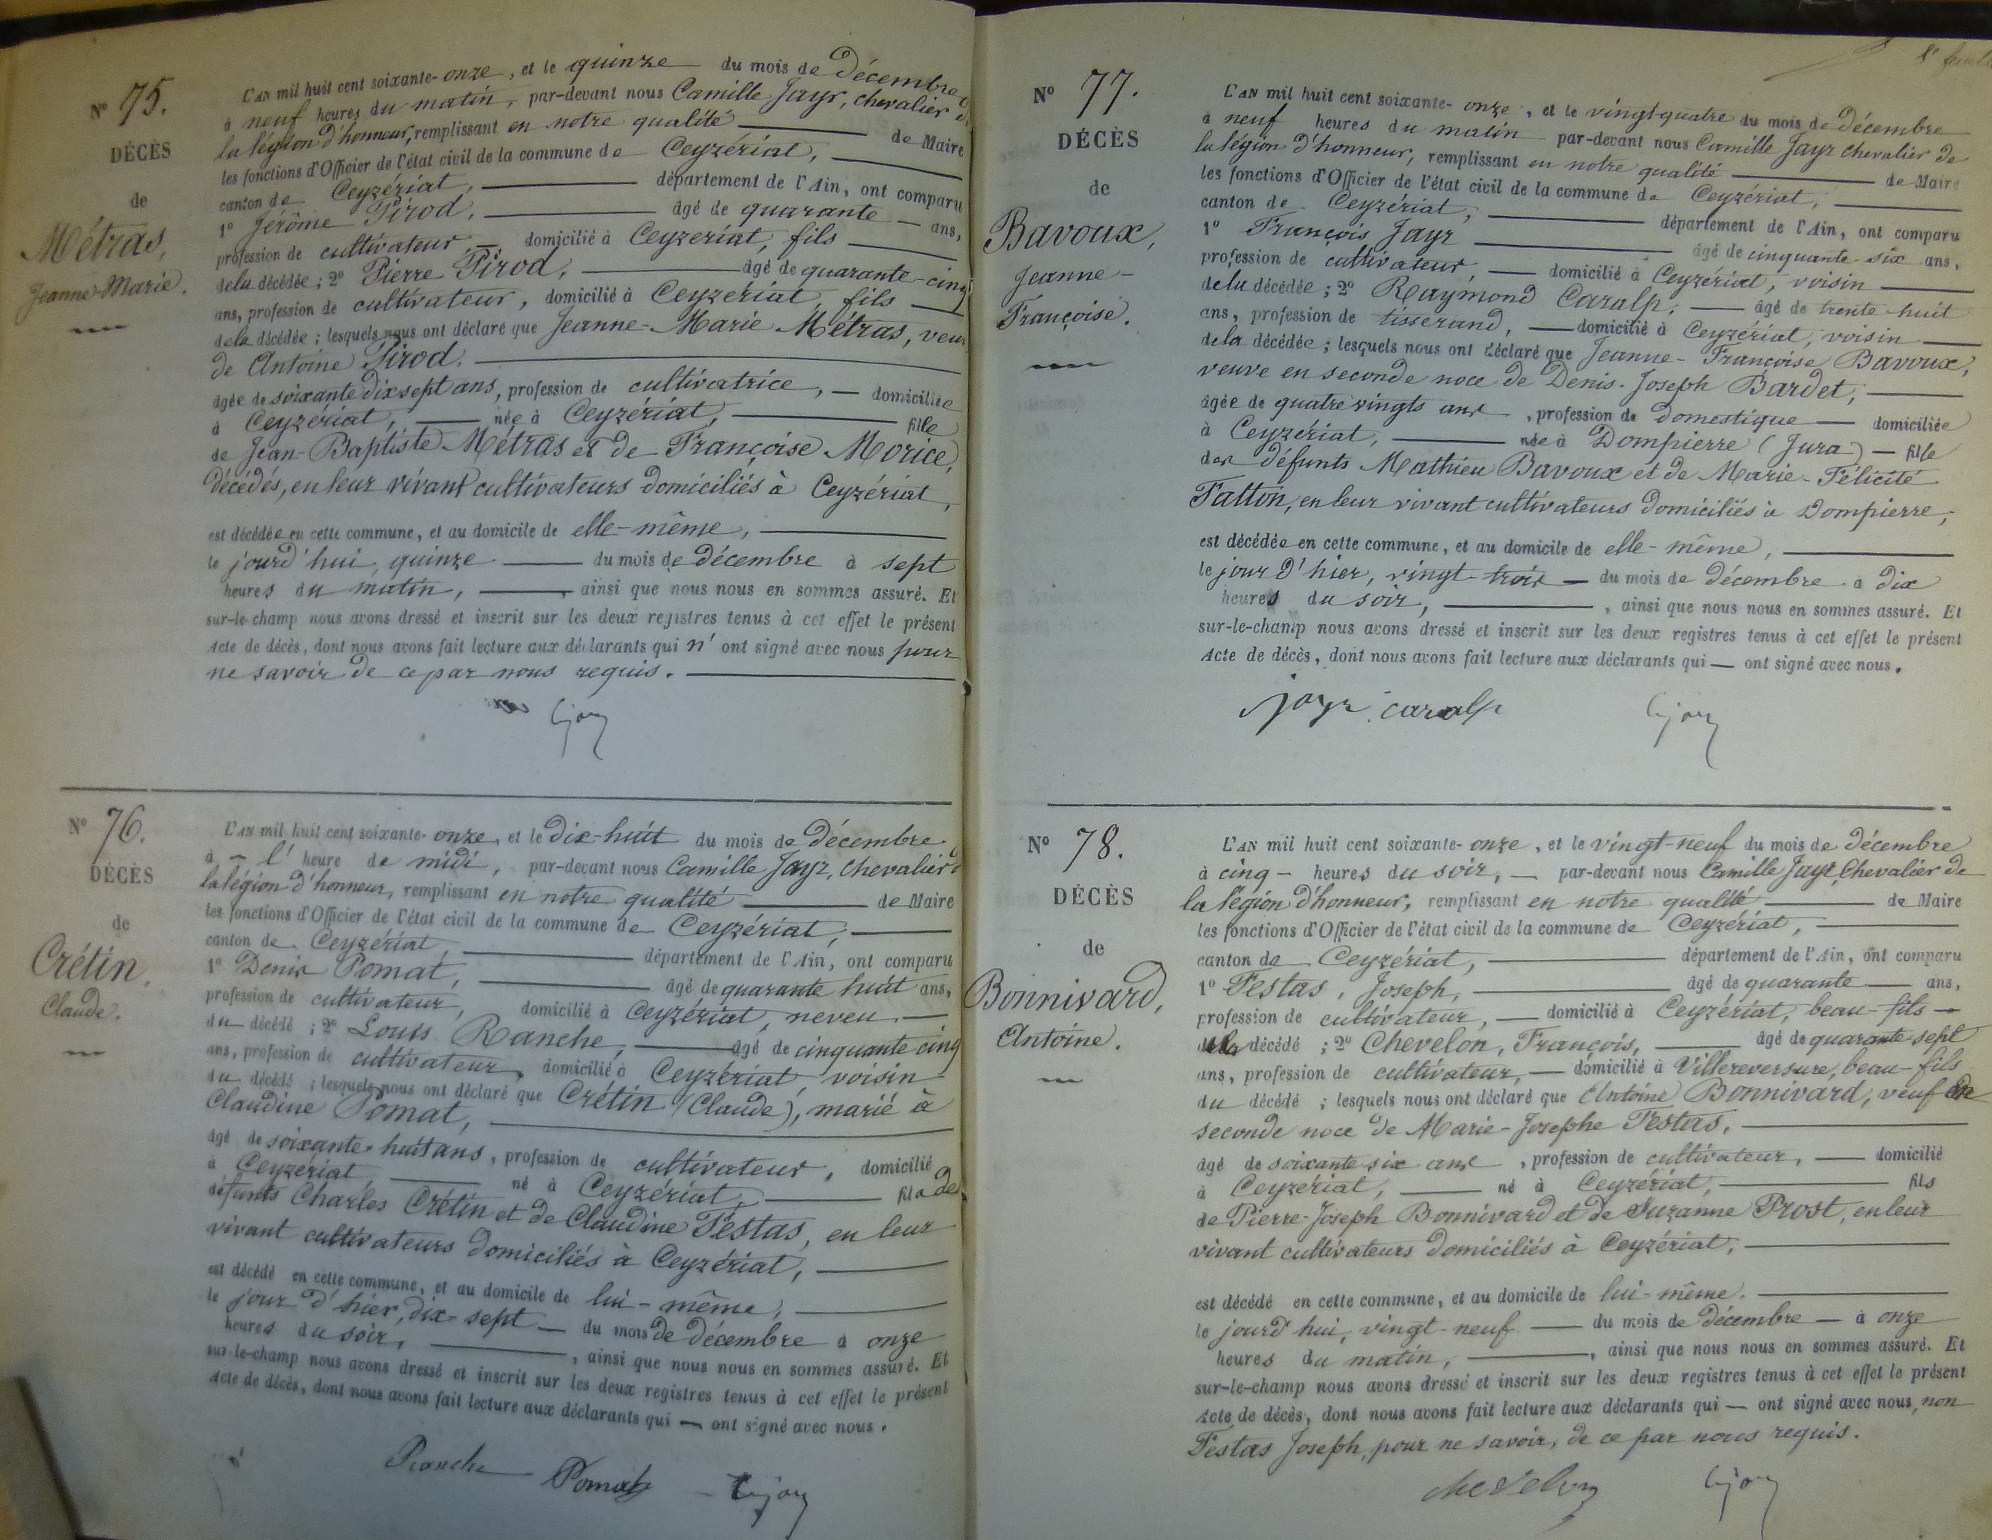 N° 75.
DÉCÈS
de
Métras,
Jeanne-Marie.
L'AN mil huit cent soixante-onze, et le quinze du mois de décembre
à neuf heures du matin, par-devant nous Camille Jayr, chevalier de
la légion d'honneur, remplissant en notre qualité de Maire
les fonctions d'Officier de l'état civil de la commune de Ceyzériat,
canton de Ceyzériat, département de l'Ain, ont comparu
1° Jérôme Pirod, âgé de quarante ans,
profession de cultivateur, domicilié à Ceyzeriat, fils
de la décédée ; 2° Pierre Pirod, âgé de quarante-cinq
ans, profession de cultivateur, domicilié à Ceyzeriat, fils
de la décédée ; lesquels nous ont déclaré que Jeanne-Marie Métras, veuve
de Antoine Pirod.
âgée de soixante dix sept ans, profession de cultivatrice, domiciliée
à Ceyzériat, née à Ceyzériat, fille
de Jean-Baptiste Métras et de Françoise Morice,
décédés, en leur vivant cultivateurs domiciliés à Ceyzériat,
est décédée en cette commune, et au domicile de elle-même,
le jourd'hui, quinze du mois de décembre à sept
heures du matin, ainsi que nous nous en sommes assuré. Et
sur-le-champ nous avons dressé et inscrit sur les deux registres tenus à cet effet le présent
Acte de décès, dont nous avons fait lecture aux déclarants qui n'ont signé avec nous pour
ne savoir de ce par nous requis.
N° 76.
DÉCÈS
de
Crétin,
Claude.
L'AN mil huit cent soixante-onze, et le dix-huit du mois de décembre
à l'heure de midi, par-devant nous Camille Jayr, Chevalier de
la légion d'honneur, remplissant en notre qualité de Maire
les fonctions d'Officier de l'état civil de la commune de Ceyzériat,
canton de Ceyzériat département de l'Ain, ont comparu
1° Denis Pomat, âgé de quarante huit ans,
profession de cultivateur, domicilié à Ceyzériat, neveu
du décédé ; 2° Louis Ranche, âgé de cinquante cinq
ans, profession de cultivateur, domicilié à Ceyzériat, voisin
du décédé ; lesquels nous ont déclaré que Crétin (Claude), marié à
Claudine Pomat,
âgé de soixante-huit ans, profession de cultivateur, domicilié
à Ceyzériat né à Ceyzériat, fils de
défunts Charles Crétin et de Claudine Festas, en leur
vivant cultivateurs domiciliés à Ceyzériat,
est décédé en cette commune, et au domicile de lui-même,
le jour d'hier, dix-sept du mois de décembre à onze
heures du soir, ainsi que nous nous en sommes assuré. Et
sur-le-champ nous avons dressé et inscrit sur les deux registres tenus à cet effet le présent
Acte de décès, dont nous avons fait lecture aux déclarants qui — ont signé avec nous.
Ranche Pomat C. Jayr
N° 77.
DÉCÈS
de
Bavoux,
Jeanne-
Françoise.
L'AN mil huit cent soixante-onze, et le vingt-quatre du mois de décembre
à neuf heures du matin par-devant nous Camille Jayr chevalier de
la légion d'honneur, remplissant en notre qualité de Maire
les fonctions d'Officier de l'état civil de la commune de Ceyzériat,
canton de Ceyzériat, département de l'Ain, ont comparu
1° François Jayr âgé de cinquante-six ans,
profession de cultivateur, domicilié à Ceyzériat, voisin
de la décédée ; 2° Raymond Caralp, âgé de trente-huit
ans, profession de tisserand, domicilié à Ceyzériat, voisin
de la décédée ; lesquels nous ont déclaré que Jeanne-Françoise Bavoux,
veuve en seconde noce de Denis-Joseph Bardet,
âgée de quatre vingts ans, profession de domestique domiciliée
à Ceyzériat, née à Dompierre (Jura) fille
des défunts Mathieu Bavoux et de Marie-Félicité
Fatton, en leur vivant cultivateurs domiciliés à Dompierre,
est décédée en cette commune, et au domicile de elle-même,
le jour d'hier, vingt-trois du mois de décembre à dix
heures du soir, ainsi que nous nous en sommes assuré. Et
sur-le-champ nous avons dressé et inscrit sur les deux registres tenus à cet effet le présent
Acte de décès, dont nous avons fait lecture aux déclarants qui — ont signé avec nous.
Jayr caralp C. Jayr
N° 78.
DÉCÈS
de
Bonnivard,
Antoine.
L'AN mil huit cent soixante-onze, et le vingt-neuf du mois de décembre
à cinq heures du soir, par-devant nous Camille Jayr, Chevalier de
la légion d'honneur, remplissant en notre qualité de Maire
les fonctions d'Officier de l'état civil de la commune de Ceyzériat,
canton de Ceyzériat, département de l'Ain, ont comparu
1° Festas, Joseph, âgé de quarante ans,
profession de cultivateur, domicilié à Ceyzériat, beau-fils
du décédé ; 2° Chevelon, François, âgé de quarante-sept
ans, profession de cultivateur, domicilié à Villereversure, beau-fils
du décédé ; lesquels nous ont déclaré que Antoine Bonnivard, veuf en
seconde noce de Marie-Josephe Festas,
âgé de soixante six ans, profession de cultivateur, domicilié
à Ceyzériat, né à Ceyzériat, fils
de Pierre-Joseph Bonnivard et de Suzanne Prost, en leur
vivant cultivateurs domiciliés à Ceyzériat,
est décédé en cette commune, et au domicile de lui-même.
le jourd'hui, vingt-neuf du mois de décembre à onze
heures du matin, ainsi que nous nous en sommes assuré. Et
sur-le-champ nous avons dressé et inscrit sur les deux registres tenus à cet effet le présent
Acte de décès, dont nous avons fait lecture aux déclarants qui — ont signé avec nous, non
Festas Joseph, pour ne savoir, de ce par nous requis.
Chevelon C. Jayr